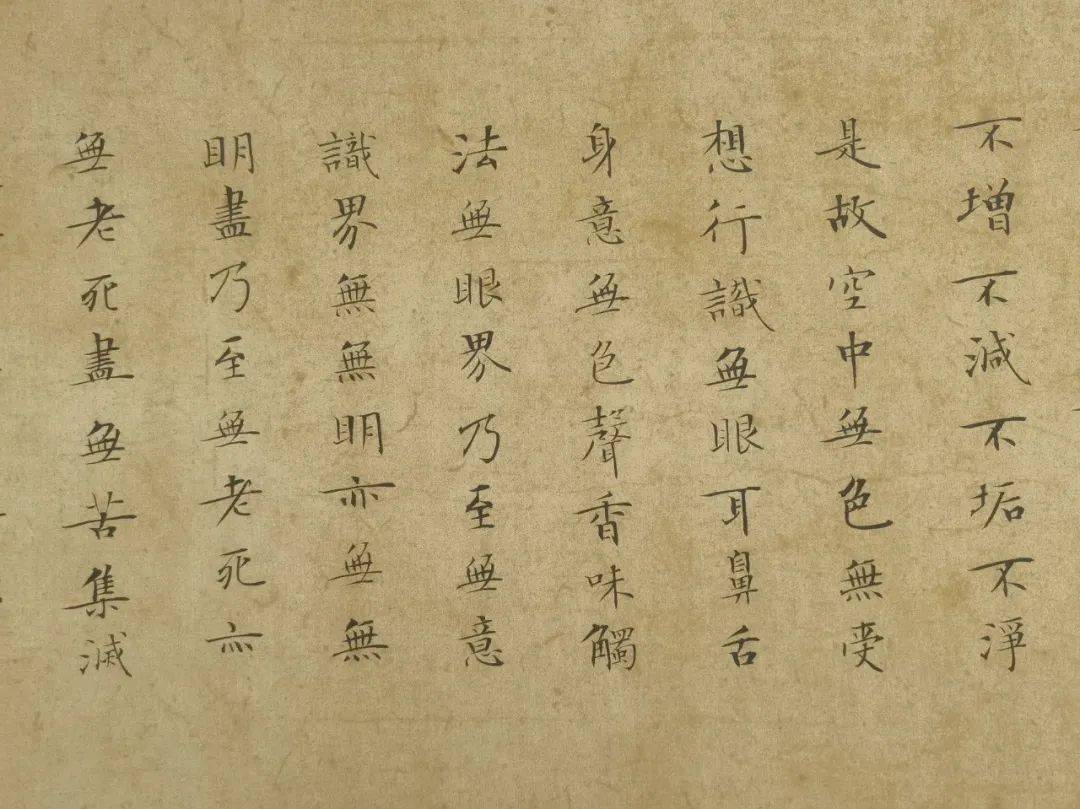 不增不減不垢不淨
是故空中無色無受
想行識無眼耳鼻舌
身意無色聲香味觸
法無眼界乃至無意
識界無無明亦無無
明盡乃至無老死亦
無老死盡無苦集滅